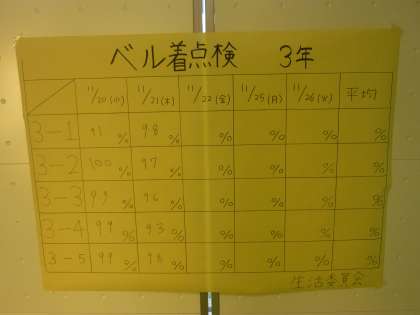 ベル着点検 3年
11/20(水) 11/21(木) 11/22(金) 11/25(月) 11/26(火) 平均
3-1 91% 98% % % % %
3-2 100% 97% % % % %
3-3 99% 96% % % % %
3-4 99% 93% % % % %
3-5 99% % % % % %
生活委員会